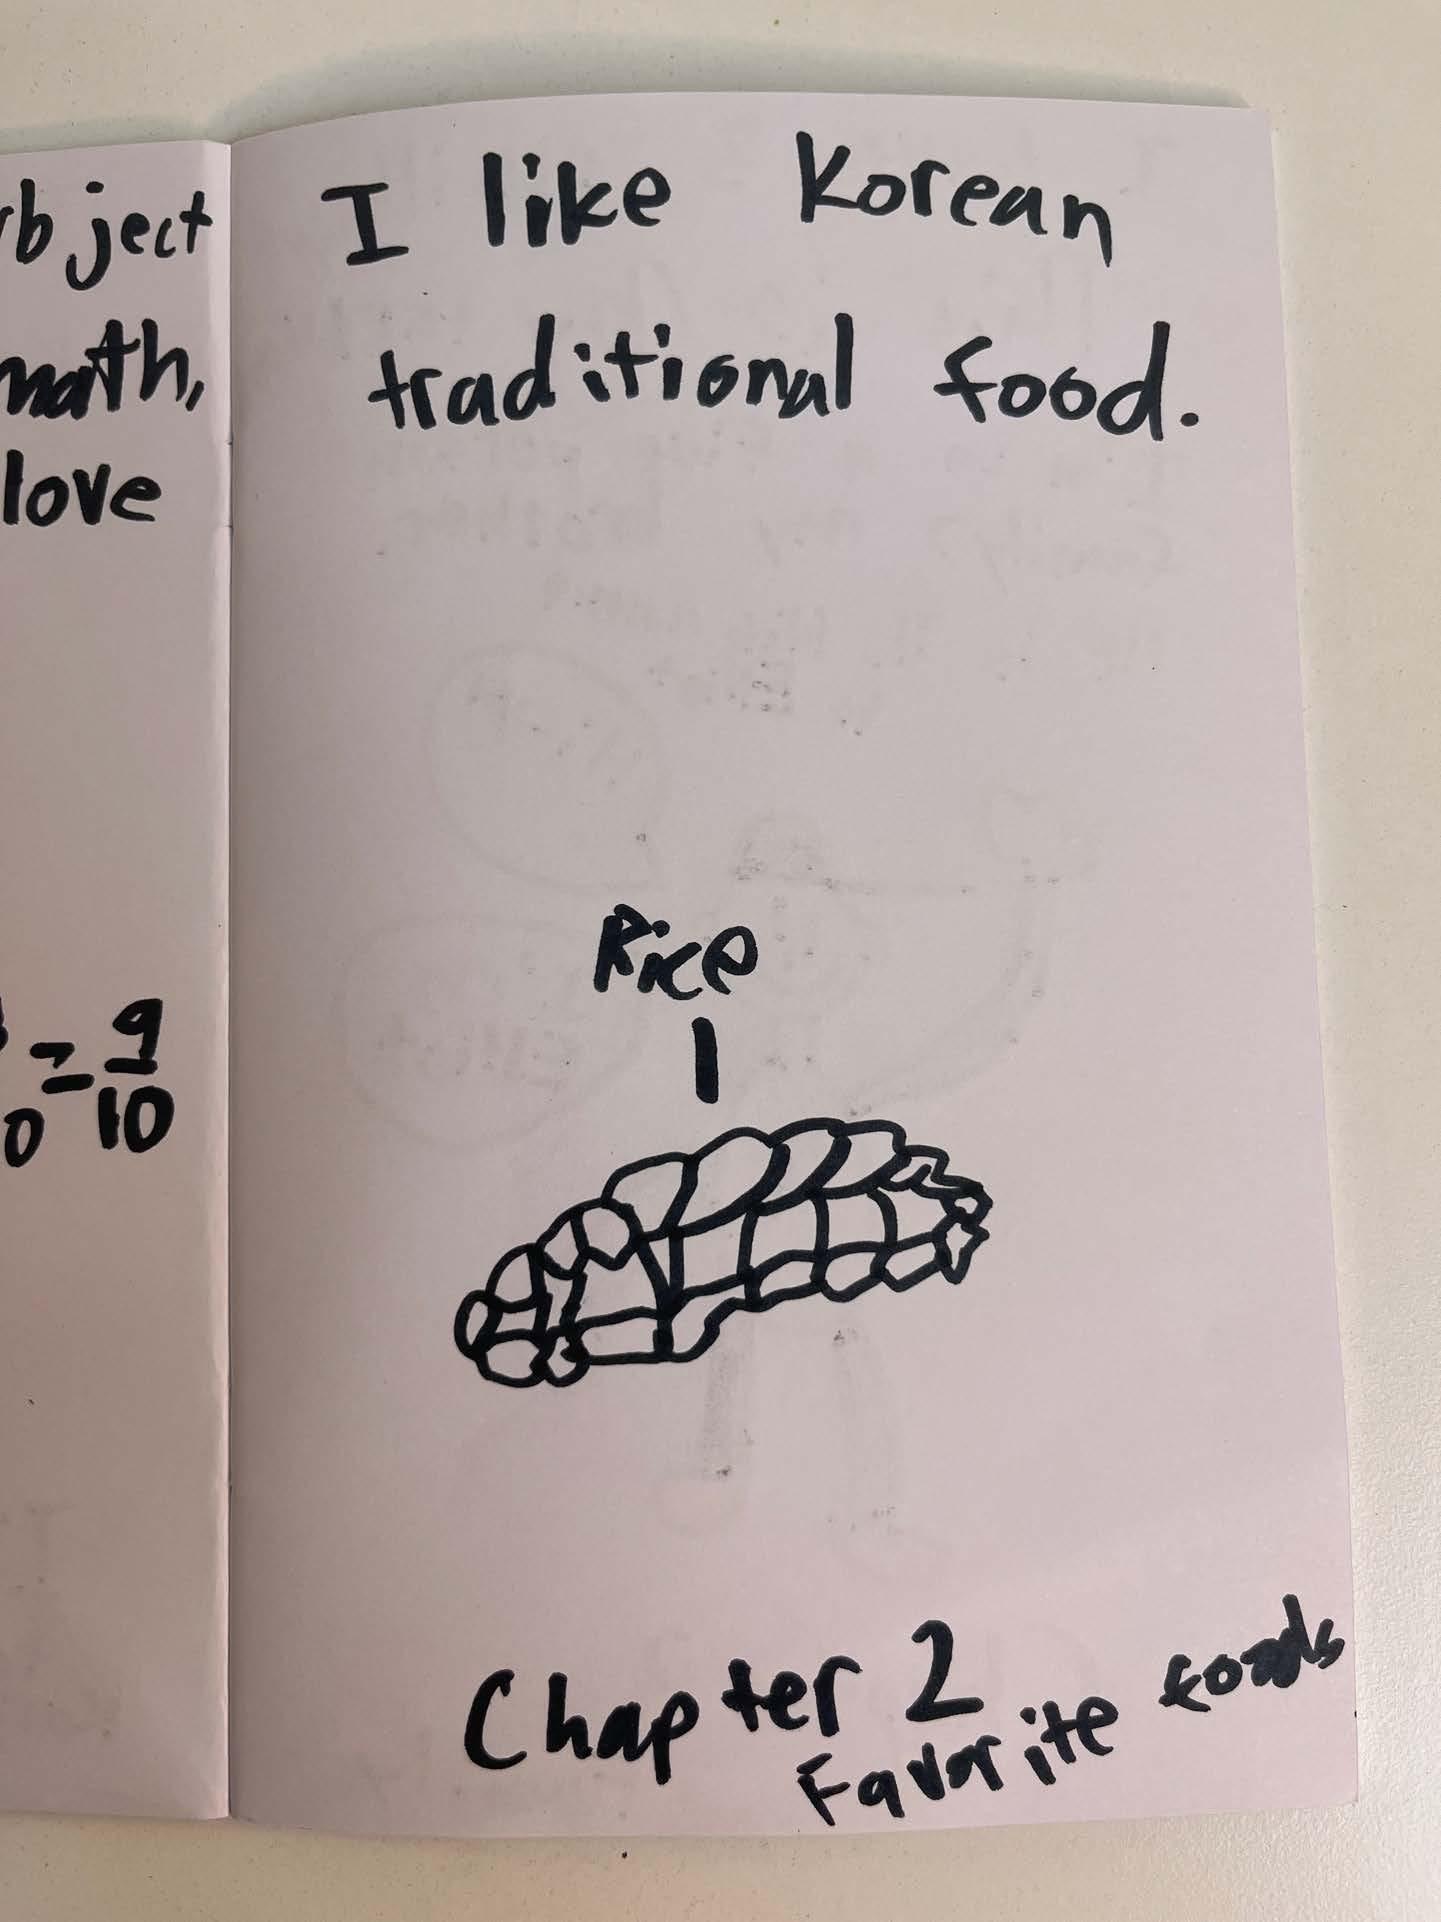 ject
math,
love
= 9
0 10
I like Korean
traditional food.
Rice
Chapter 2
Favorite foods